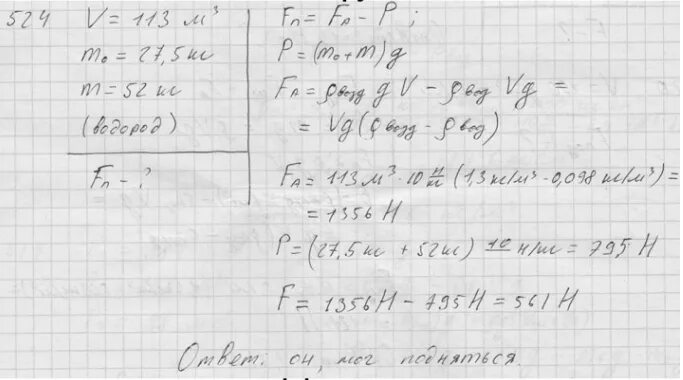 524 V = 113 м³
m₀ = 27,5 кг
m = 52 кг
(водород)
Fп - ?
Fп = FA - P ;
P = (m₀ + m) g
FA = ρвозд g V - ρвод Vg =
= Vg (ρвозд - ρвод)
FA = 113 м³ · 10 Н/кг (1,3 кг/м³ - 0,098 кг/м³) =
= 1356 Н
P = (27,5 кг + 52 кг) 10 н/кг = 795 Н
F = 1356 Н - 795 Н = 561 Н
Ответ: он, мог подняться.